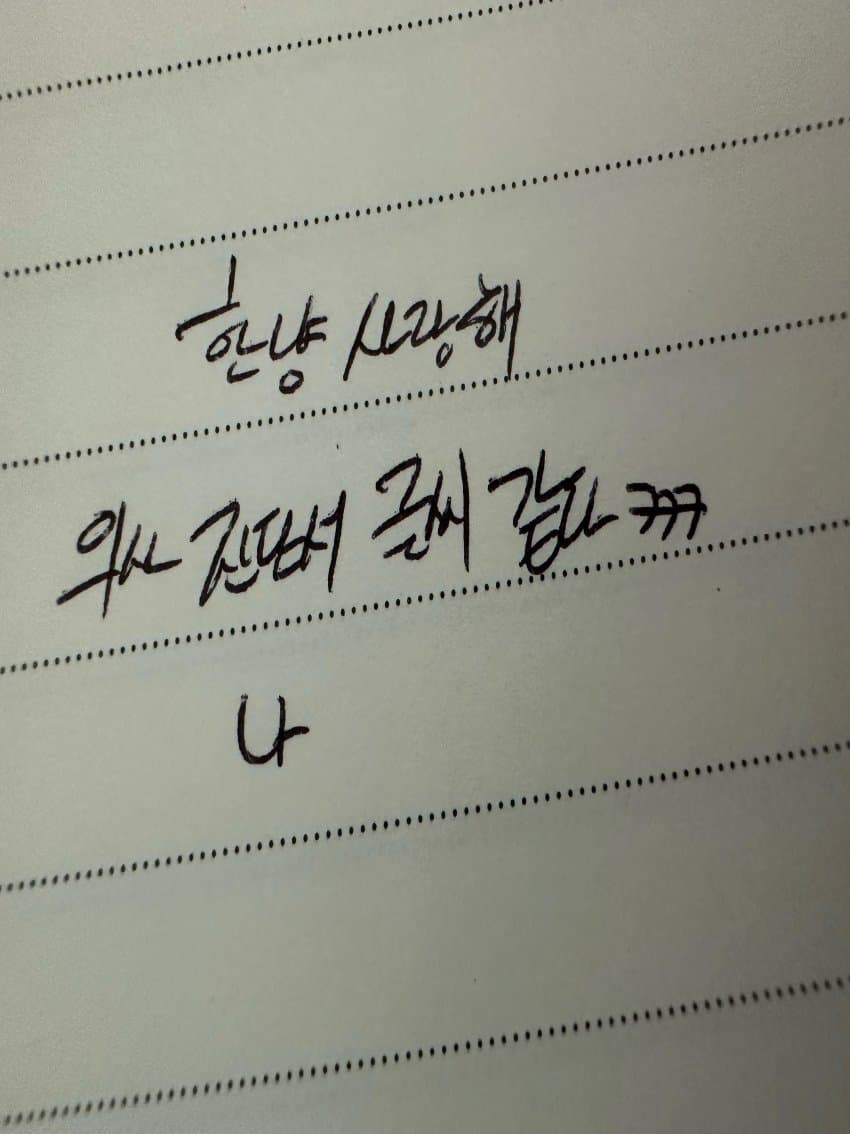 한냥 사랑해
의사 진단서 글씨 같다 ㅋㅋㅋ
나